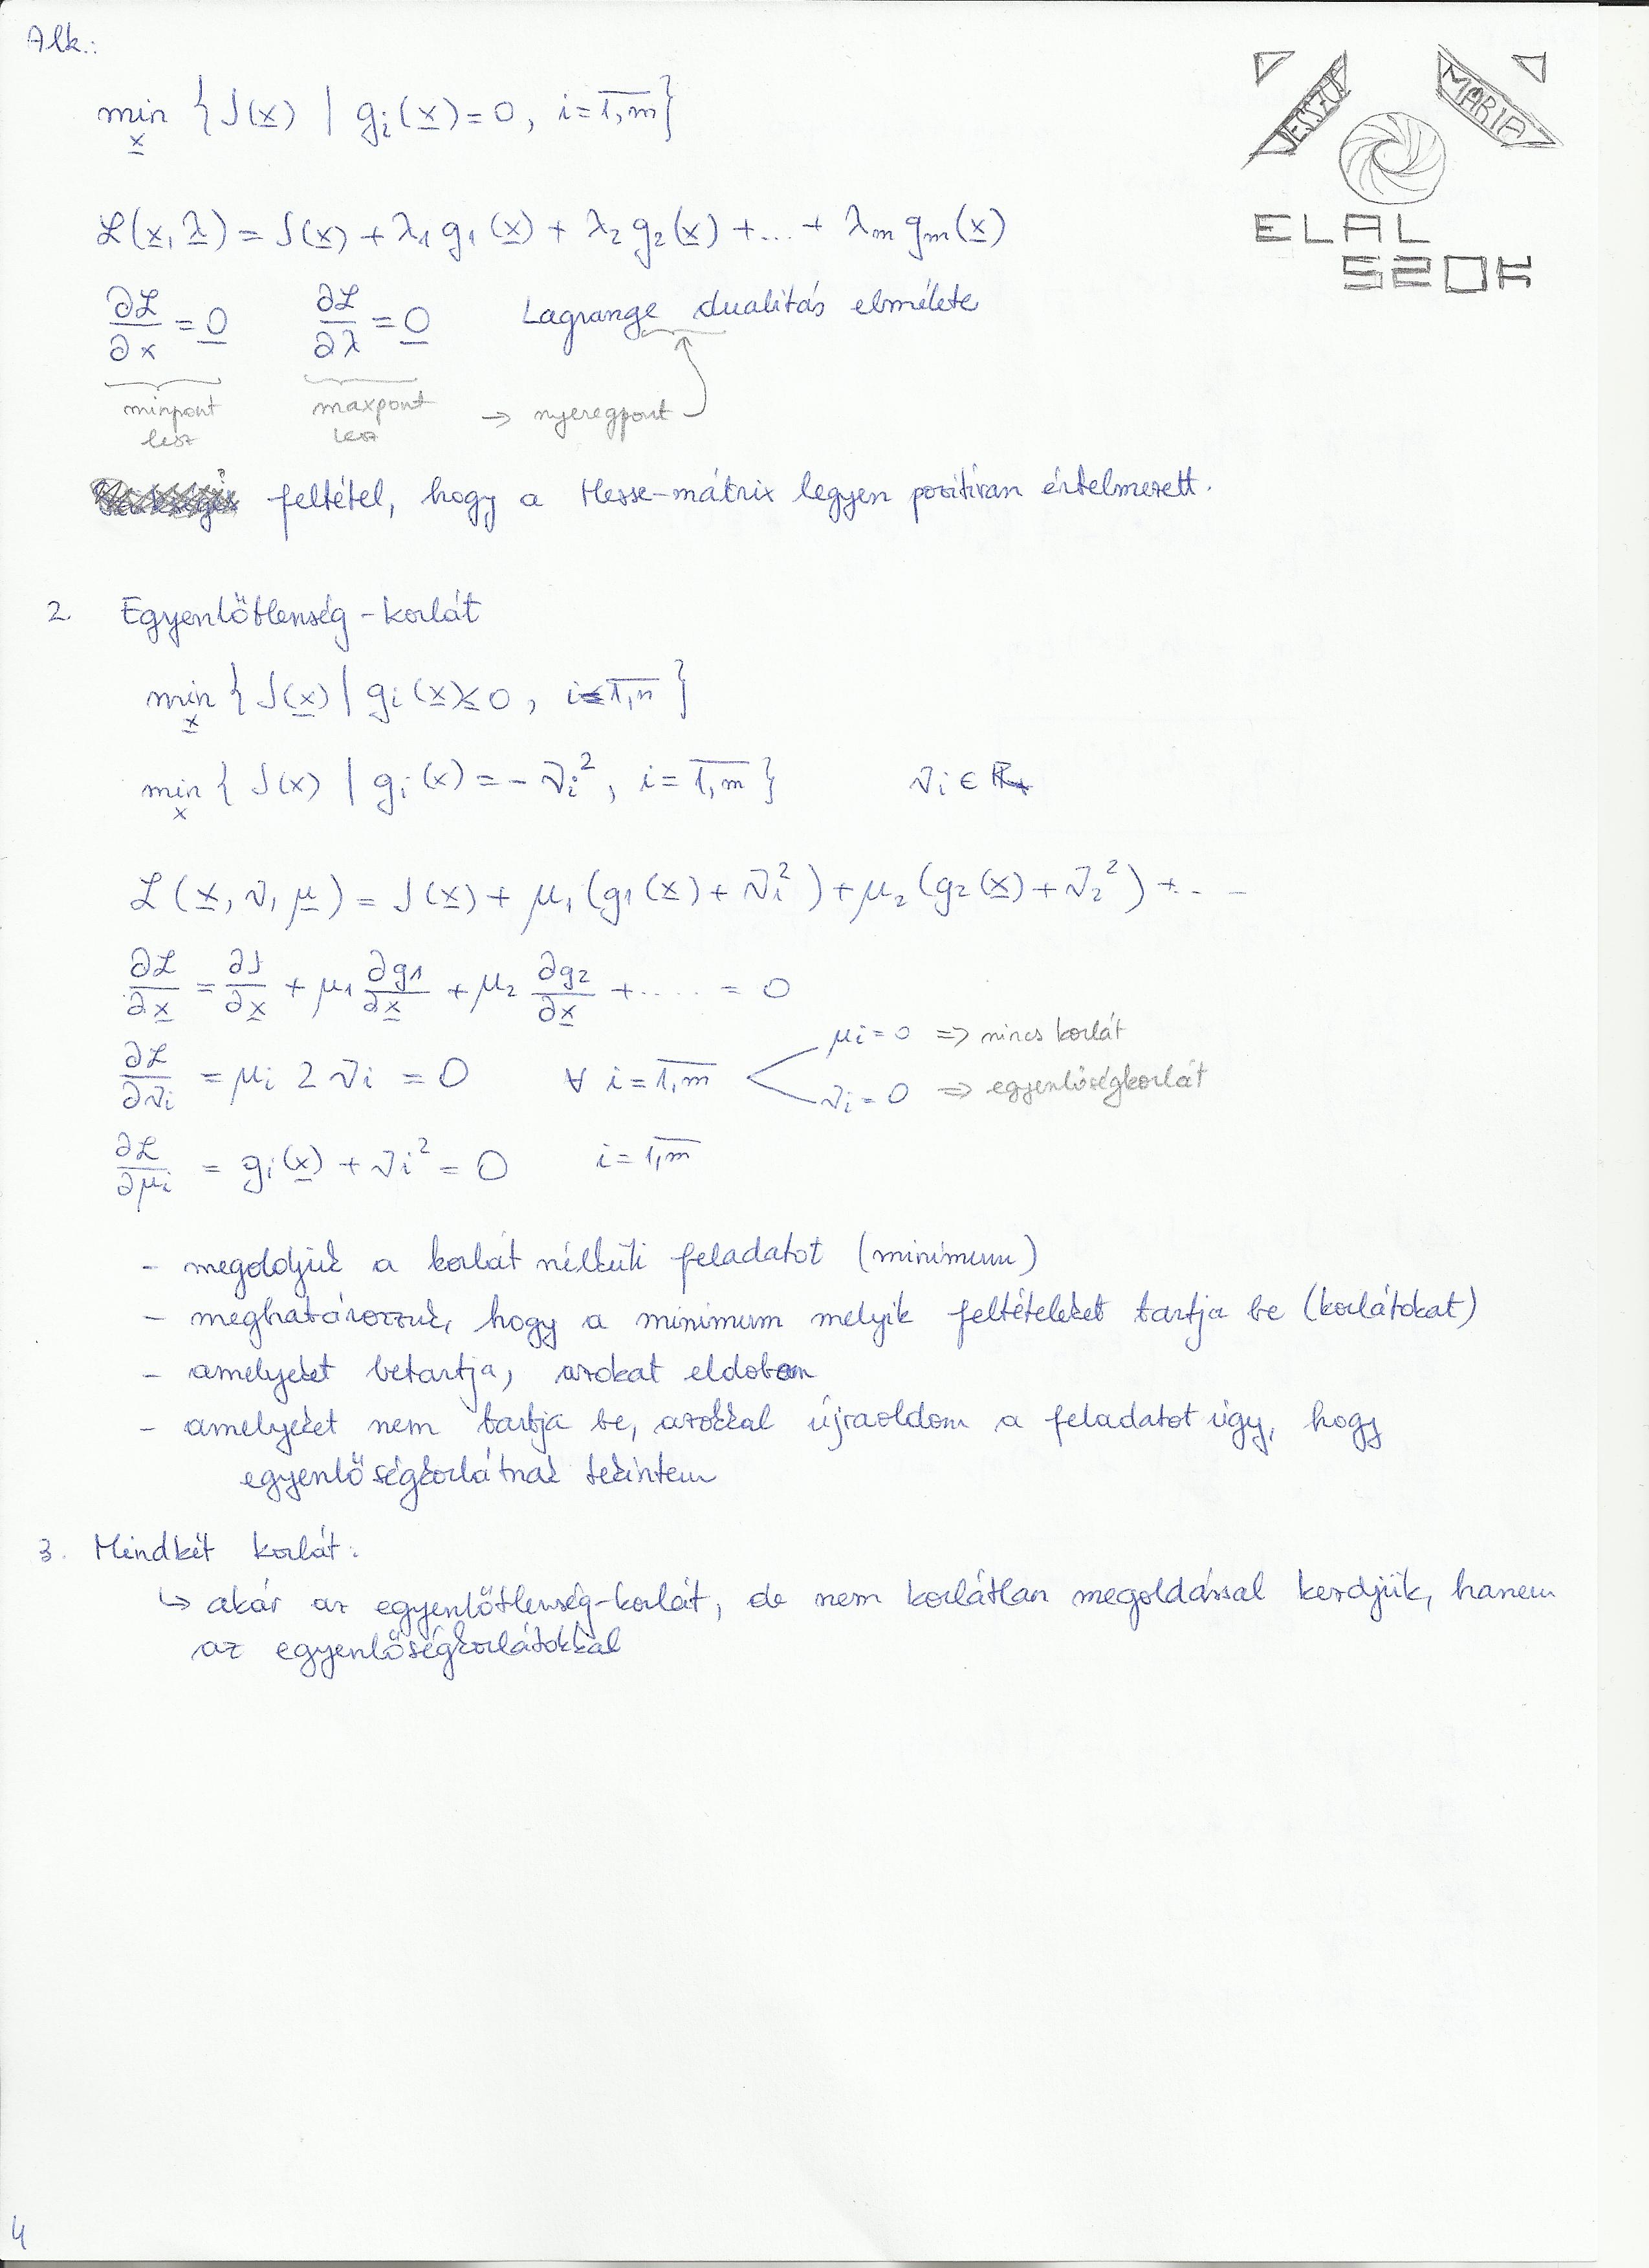 Alk.:
min {J(x) | gi(x)=0, i=1,m}
x
JESSZUS MÁRIA
ELAL
SZOK
ℒ(x, λ) = J(x) + λ1 g1(x) + λ2 g2(x) + ... + λm gm(x)
∂ℒ/∂x = 0   ∂ℒ/∂λ = 0   Lagrange dualitás elmélete
minpont lesz   maxpont lesz → nyeregpont
feltétel, hogy a Hesse-mátrix legyen pozitívan értelmezett.
2. Egyenlőtlenség-korlát
min {J(x) | gi(x) ≤ 0, i=1,n}
x
min {J(x) | gi(x) = -νi², i=1,m}   νi ∈ R+
x
ℒ(x, ν, μ) = J(x) + μ1(g1(x) + νi²) + μ2(g2(x) + ν2²) + ...
∂ℒ/∂x = ∂J/∂x + μ1 ∂g1/∂x + μ2 ∂g2/∂x + ..... = 0
μi = 0 => nincs korlát
∂ℒ/∂νi = μi 2 νi = 0   ∀ i=1,m
νi = 0 => egyenlőségkorlát
∂ℒ/∂μi = gi(x) + νi² = 0   i=1,m
- megoldjuk a korlát nélküli feladatot (minimum)
- meghatározzuk, hogy a minimum melyik feltételeket tartja be (korlátokat)
- amelyeket betartja, azokat eldobom
- amelyeket nem tartja be, azokkal újraoldom a feladatot úgy, hogy
egyenlőségkorlátnak tekintem
3. Mindkét korlát:
↳ akár az egyenlőtlenség-korlát, de nem korlátlan megoldással kezdjük, hanem
az egyenlőségkorlátokkal
4